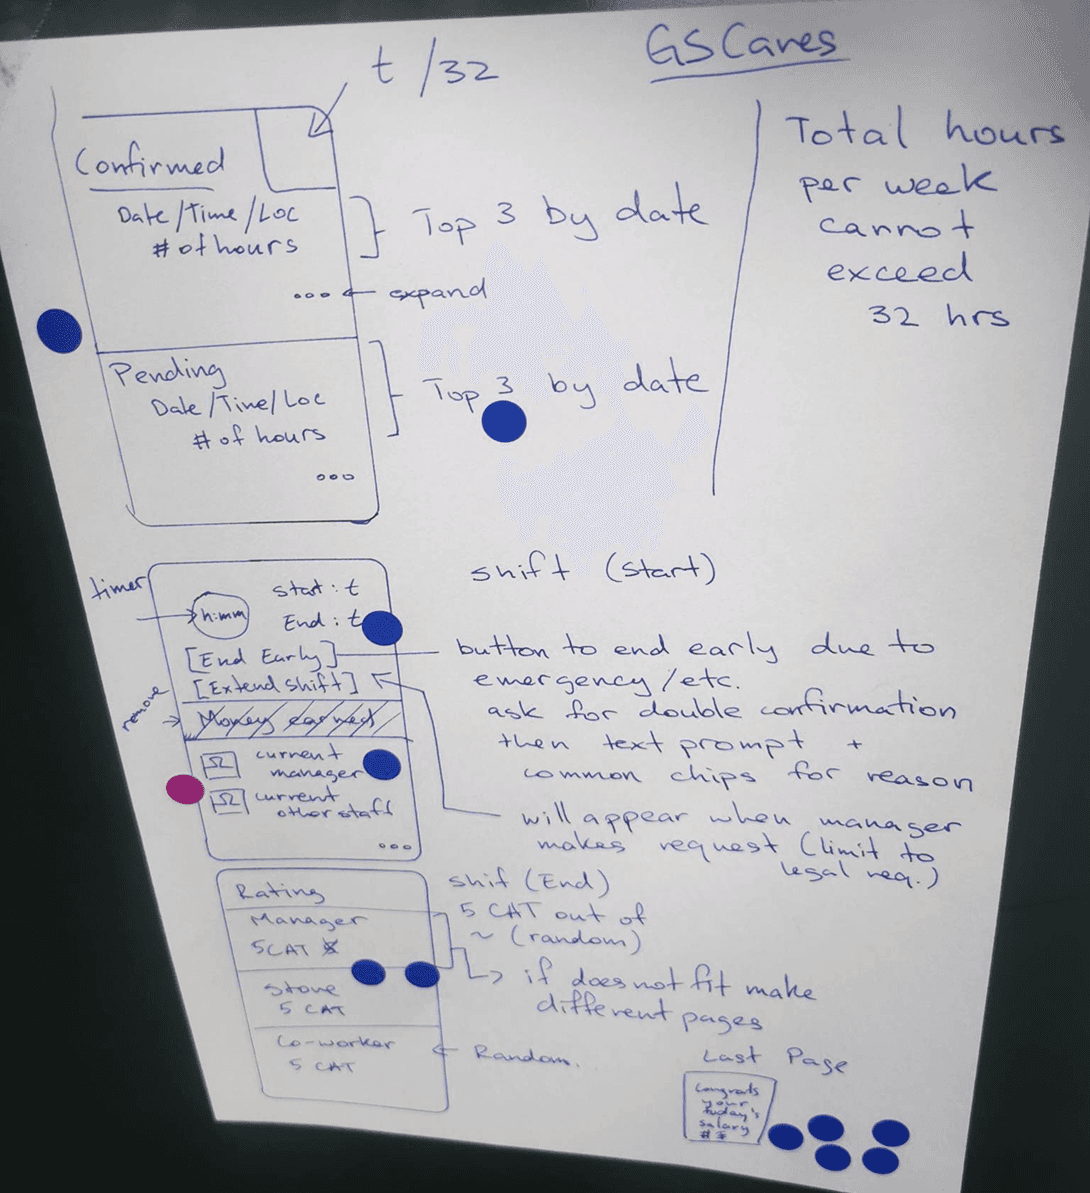 GSCares
t /32
Total hours
per week
cannot
exceed
32 hrs
Confirmed
Date/Time/Loc
# of hours
Top 3 by date
expand
Pending
Date/Time/Loc
# of hours
Top 3 by date
shift (start)
timer
h:mm
start : t
End : t
[End Early]
button to end early due to
emergency/etc.
ask for double confirmation
then text prompt +
common chips for reason
[Extend shift]
will appear when manager
makes request (limit to
legal req.)
remove
Money earned
current
manager
current
other staff
shif (End)
5 CAT out of
~ (random)
Rating
Manager
5CAT
if does not fit make
different pages
Store
5 CAT
Co-worker
5 CAT
Random.
Last Page
Congrats
your
today's
salary